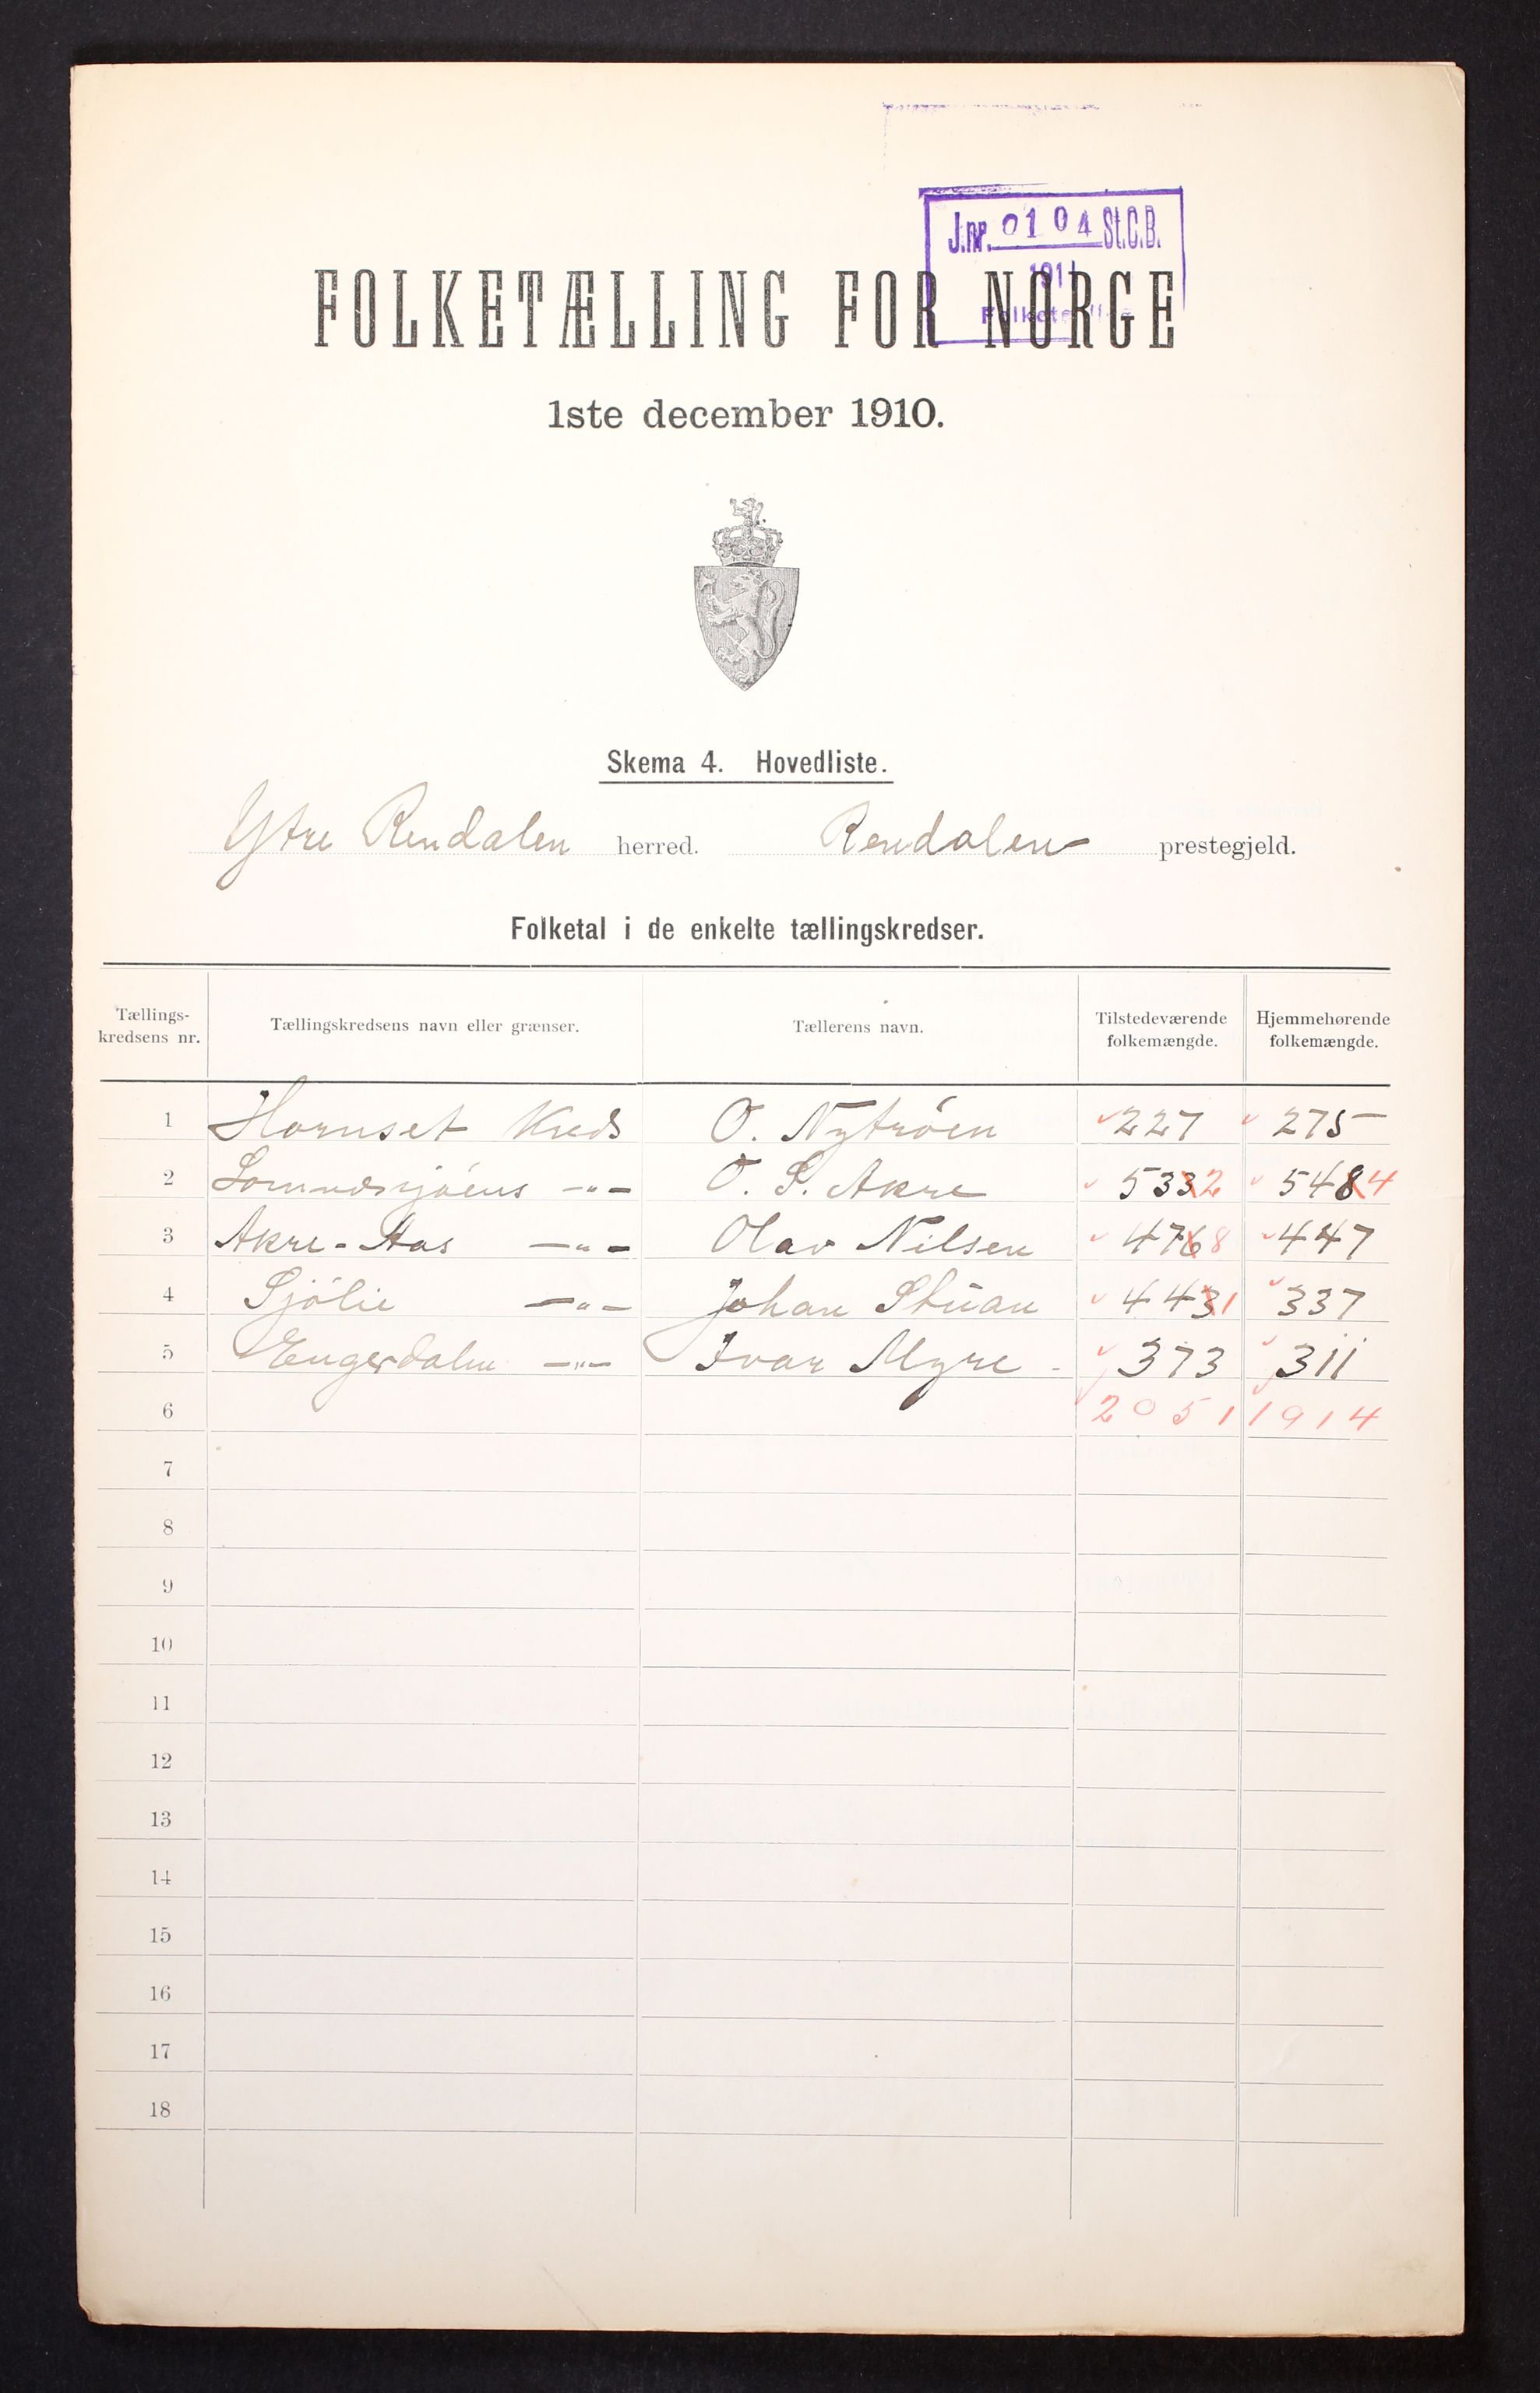 J.nr. 0104 St.C.B.
191
Folketelling
FOLKETÆLLING FOR NORGE
1ste december 1910.
Skema 4. Hovedliste.
Ytre Rendalen herred. Rendalen prestegjeld.
Folketal i de enkelte tællingskredser.
Tællings-kredsens nr. Tællingskredsens navn eller grænser. Tællerens navn. Tilstedeværende folkemængde. Hjemmehørende folkemængde.
1 Hornset Kreds O. Nytröen 227 275
2 Lomnæssjöens -"- O. S. Akre 5332 5484
3 Akre-Aas -"- Olav Nilsen 4768 447
4 Sjölie -"- Johan Stuan 4431 337
5 Engerdalen -"- Ivar Myre 373 311
6 2051 1914
7
8
9
10
11
12
13
14
15
16
17
18